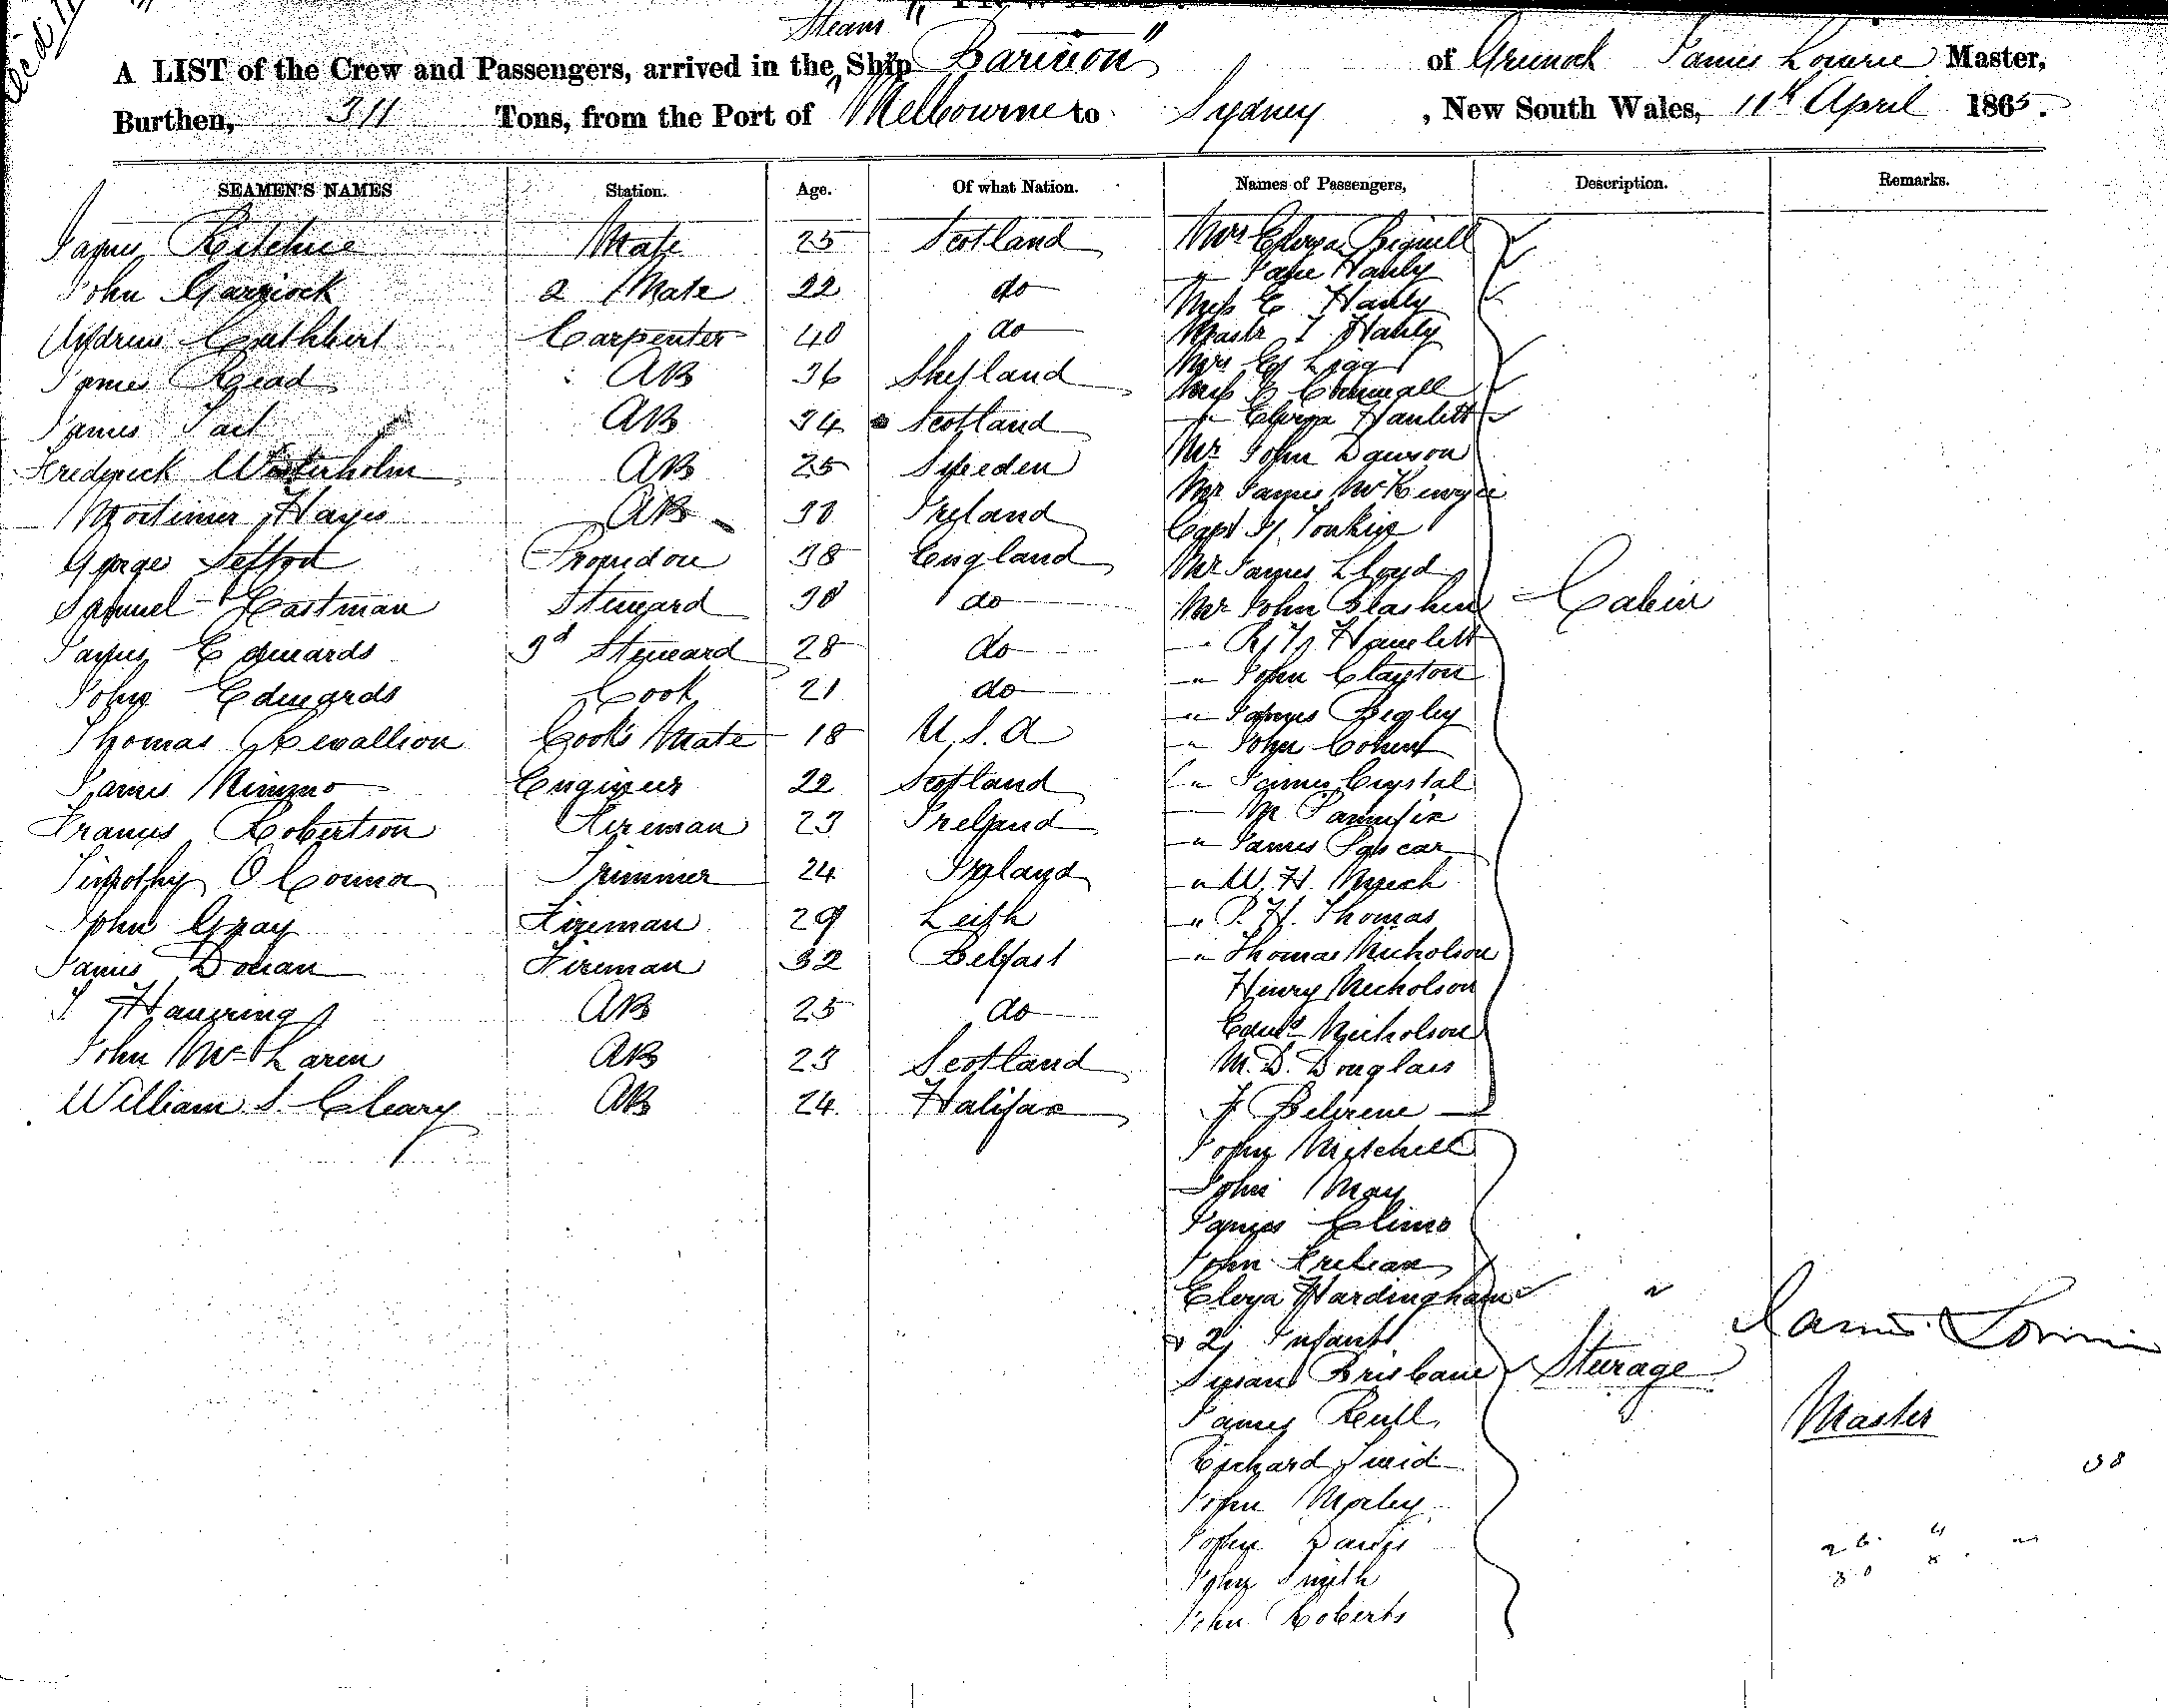 Steam
A LIST of the Crew and Passengers, arrived in the Ship "Barwon" of Greenock James Lowrie Master,
Burthen, 311 Tons, from the Port of Melbourne to Sydney, New South Wales, 11th April 1865.
SEAMEN'S NAMES Station. Age. Of what Nation. Names of Passengers, Description. Remarks.
James Ritchie Mate 25 Scotland Mrs Eloyza Bignell
John Garriock 2 Mate 22 do " Jane Hanly
Miss E Hanly
Andrew Cuthbert Carpenter 40 do Mastr J Hanly
Mrs Ligg
James Read AB 36 Shetland Miss Cornwall
James Tait AB 34 Scotland " Eloyza Hamlett
Mr John Dawson
Frederick Westerholm AB 25 Sweden
Mr James McKenzie
Mortimer Hayes AB 30 Ireland
Capt H. Tonkin
George Sefford 38 England Mr James Lloyd
Samuel Eastman Steward 30 do Mr John Cabin
James Edwards 3d Steward 28 do " Hamlett
" John Clayton
John Edwards Cook 21 do " James Begley
Thomas Revallion Cook's Mate 18 U.S.A " John
James Nimmo Engineer 22 Scotland " James Crystal
Francis Robertson Fireman 23 Ireland
" James
Timothy O'Connor Trimmer 24 Ireland " W. H.
John Gray Fireman 29 Leith " P. H. Thomas
James Doran Fireman 32 Belfast " Thomas Nicholson
Henry Nicholson
J. AB 25 do Edwd Nicholson
John McLaren AB 23 Scotland M. D. Douglass
William S. Cleary AB 24 Halifax F
John Mitchell
John May
James Climo
John
Eloyza Hardingham
& 2 Infants
Susan Brisbane Steerage James Lowrie
James Master
Richard
John Morley
John Davis
John Smith
John Roberts